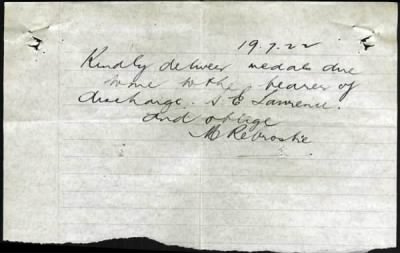 19.7.22
Kindly deliver medals due
to me to the bearer of
discharge. S. E Lawrence.
and oblige
M